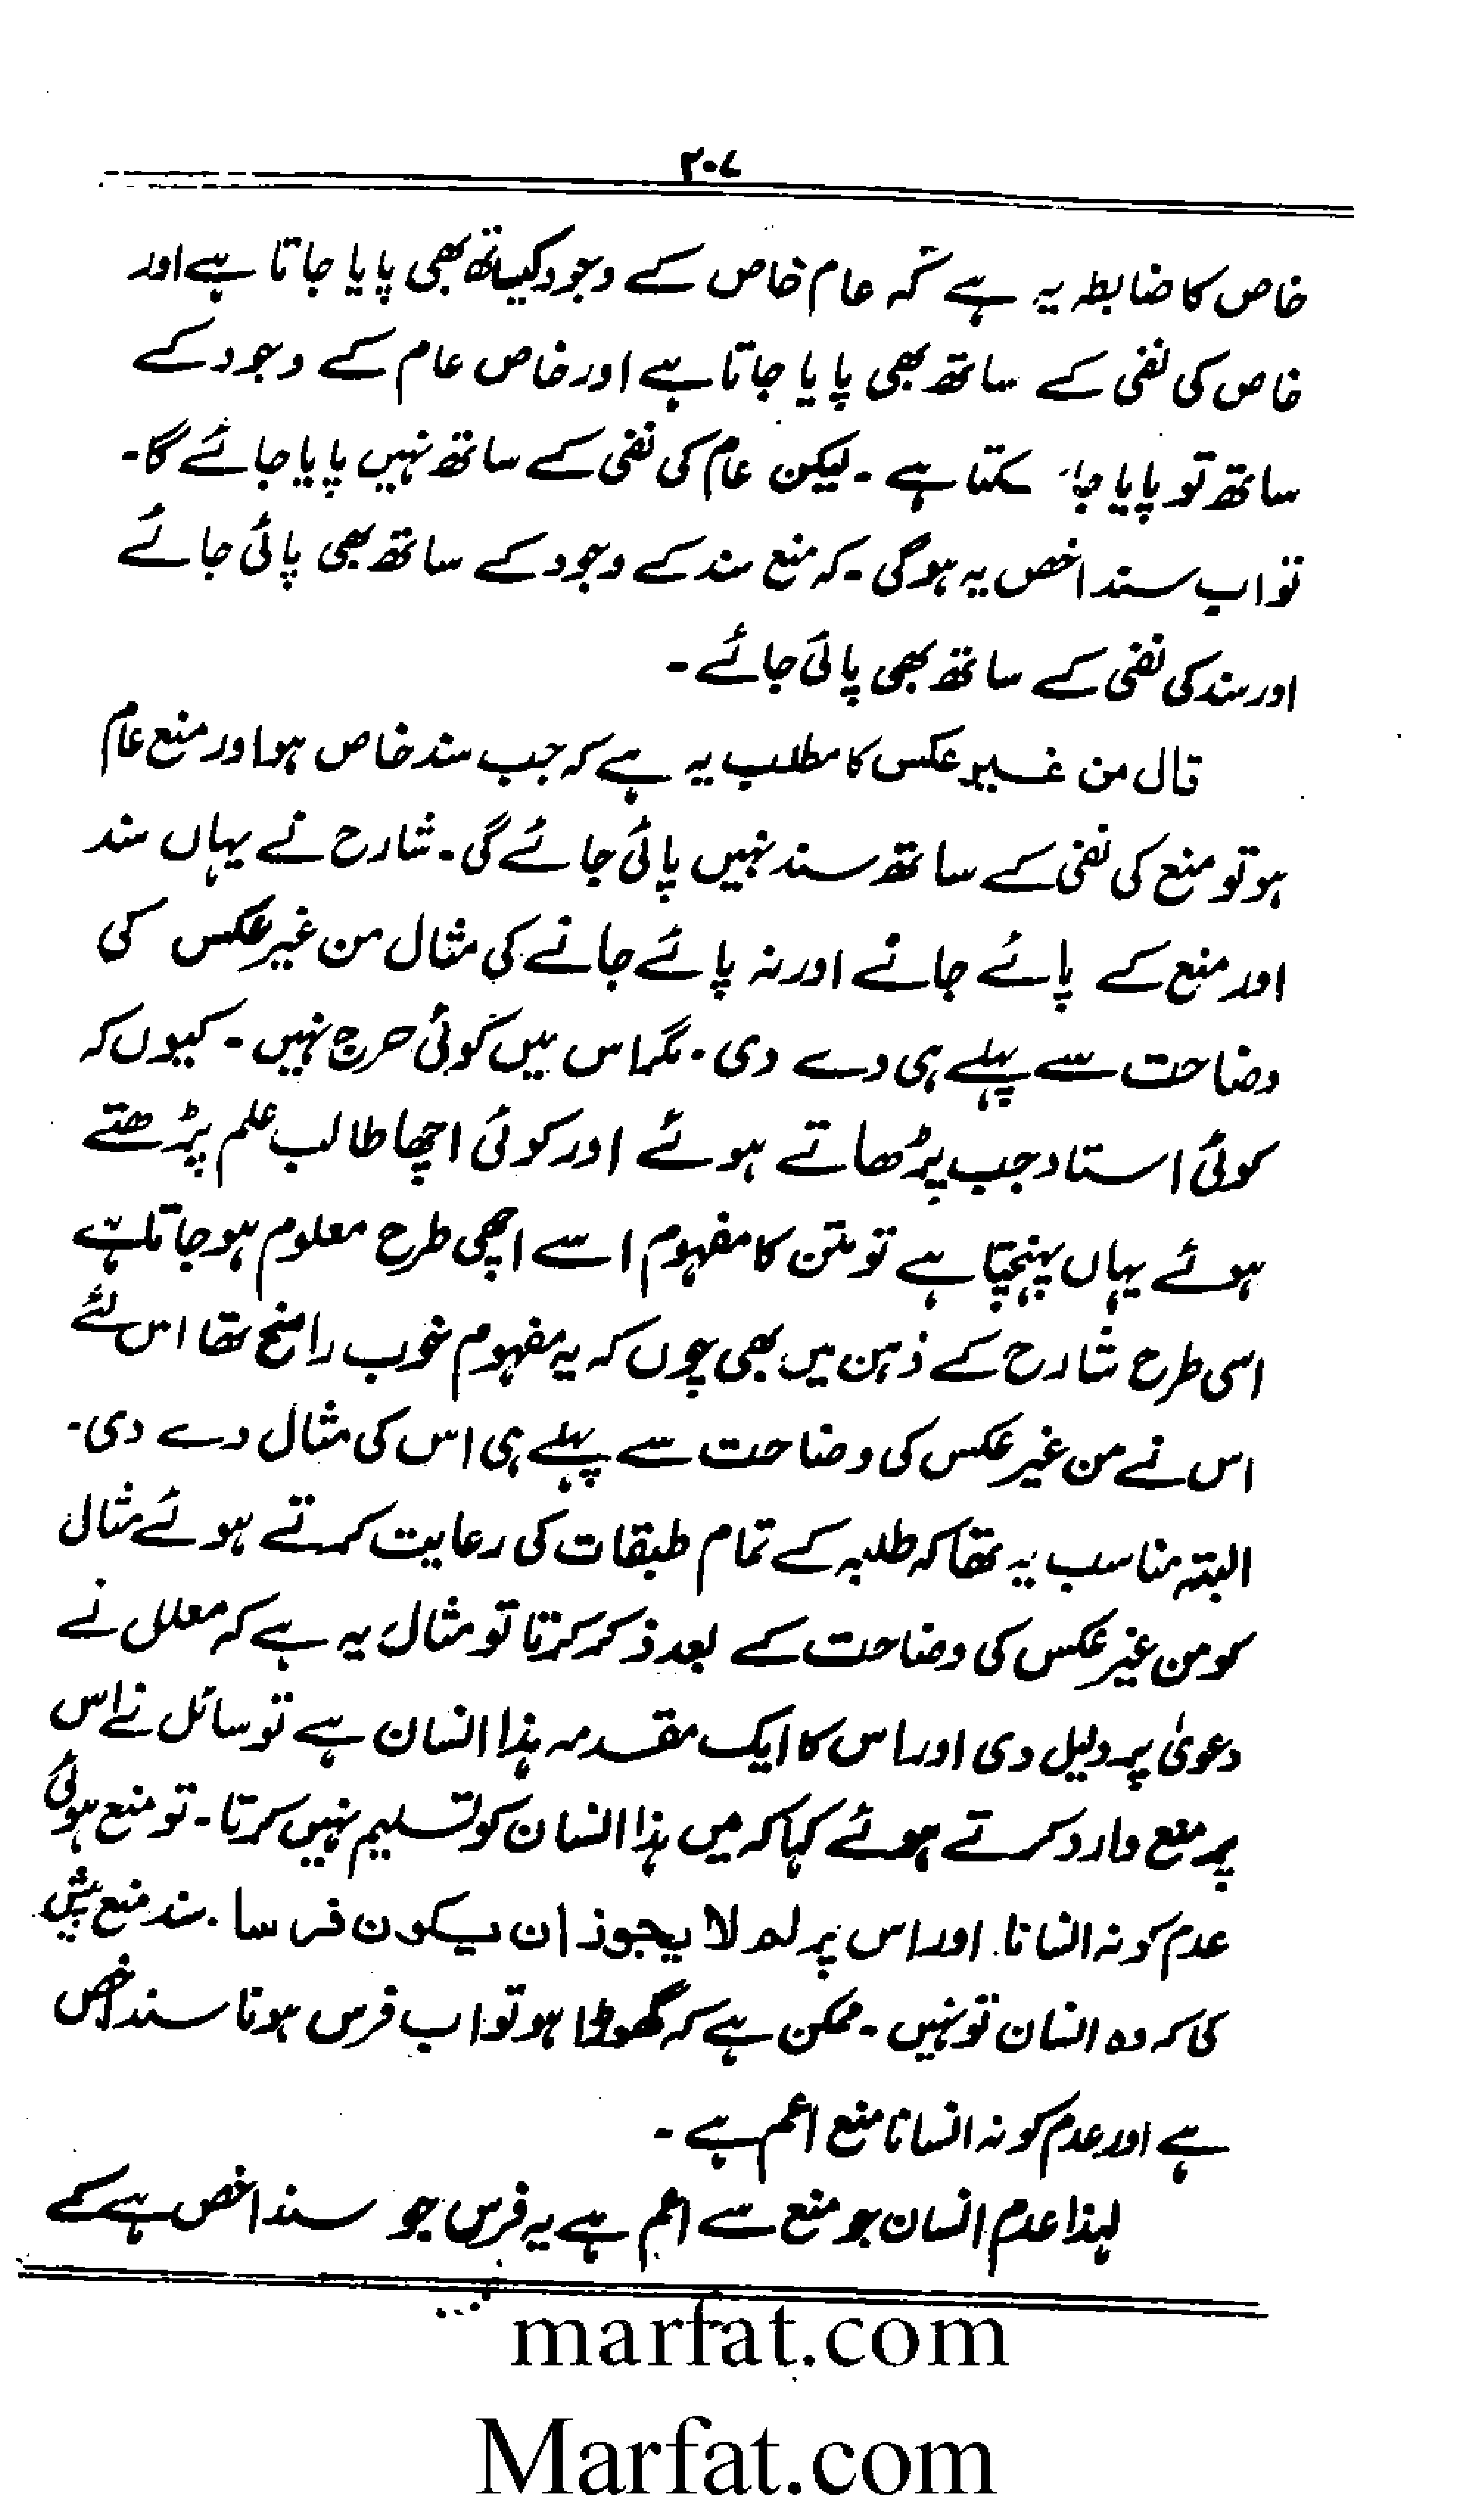 ۳۰۷
خاص کا ضابطہ یہ ہے کہ عام خاص کے وجود کیساتھ بھی پایا جاتا ہے اور
خاص کی نفی کے ساتھ بھی پایا جاتا ہے اور خاص عام کے وجود کے
ساتھ تو پایا جا سکتا ہے ۔ لیکن عام کی نفی کے ساتھ نہیں پایا جائے گا۔
تو اب سند اخص یہ ہوگی ۔ کہ منع سند کے وجود کے ساتھ بھی پائی جائے
اور سند کی نفی کے ساتھ بھی پائی جائے ۔
قال من غیر عکس کا مطلب یہ ہے کہ جب سند خاص ہو اور منع عام
ہو تو منع کی نفی کے ساتھ سند نہیں پائی جائے گی ۔ شارح نے یہاں سند
اور منع کے پائے جانے اور نہ پائے جانے کی مثال من غیر عکس کی
وضاحت سے پہلے ہی دے دی ۔ مگر اس میں کوئی حرج نہیں ۔ کیوں کہ
کوئی استاد جب پڑھاتے ہوئے اور کوئی اچھا طالب علم پڑھتے
ہوئے یہاں پہنچتا ہے تو متن کا مفہوم اسے اچھی طرح معلوم ہو جاتا ہے
اسی طرح شارح کے ذہن میں بھی چوں کہ یہ مفہوم خوب راسخ تھا اس لئے
اس نے من غیر عکس کی وضاحت سے پہلے ہی اس کی مثال دے دی ۔
البتہ مناسب یہ تھا کہ طلبہ کے تمام طبقات کی رعایت کرتے ہوئے مثال
کو من غیر عکس کی وضاحت کے بعد ذکر کرتا تو مثال یہ ہے کہ معلل نے
دعویٰ پر دلیل دی اور اس کا ایک مقدمہ ہذا انسان ہے تو سائل نے اس
پر منع وارد کرتے ہوئے کہا کہ میں ہذا انسان کو تسلیم نہیں کرتا ۔ تو منع ہوئی
عدم کونہ انسانا اور اس پر لم لا یجوز ان یکون فرسا ۔ سند منع پیش
کی کہ وہ انسان تو نہیں ۔ ممکن ہے کہ گھوڑا ہو تو اب فرس ہونا سند اخص
ہے اور عدم کونہ انسانا منع اعم ہے ۔
لہذا عدم انسان جو منع سے اعم ہے یہ فرس جو سند اخص ہے کے
marfat.com
Marfat.com